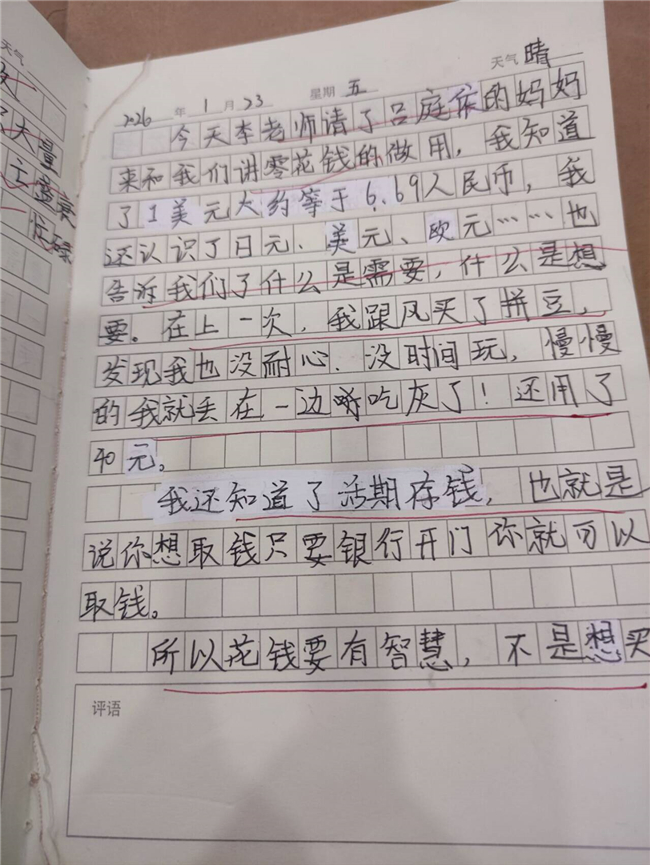 天气
天气 晴
2026 年 1 月 23 星期 五
大量
今天李老师请了吕庭侯的妈妈
来和我们讲零花钱的做用，我知道
了1美元大约等于6.69人民币，我
还认识了日元、美元、欧元……也
告诉我们了什么是需要，什么是想
要。在上一次，我跟风买了拼豆，
发现我也没耐心．没时间玩，慢慢
的我就丢在一边吃灰了！还用了
40元。
我还知道了活期存钱，也就是
说你想取钱只要银行开门你就可以
取钱。
所以花钱要有智慧，不是想买
评语